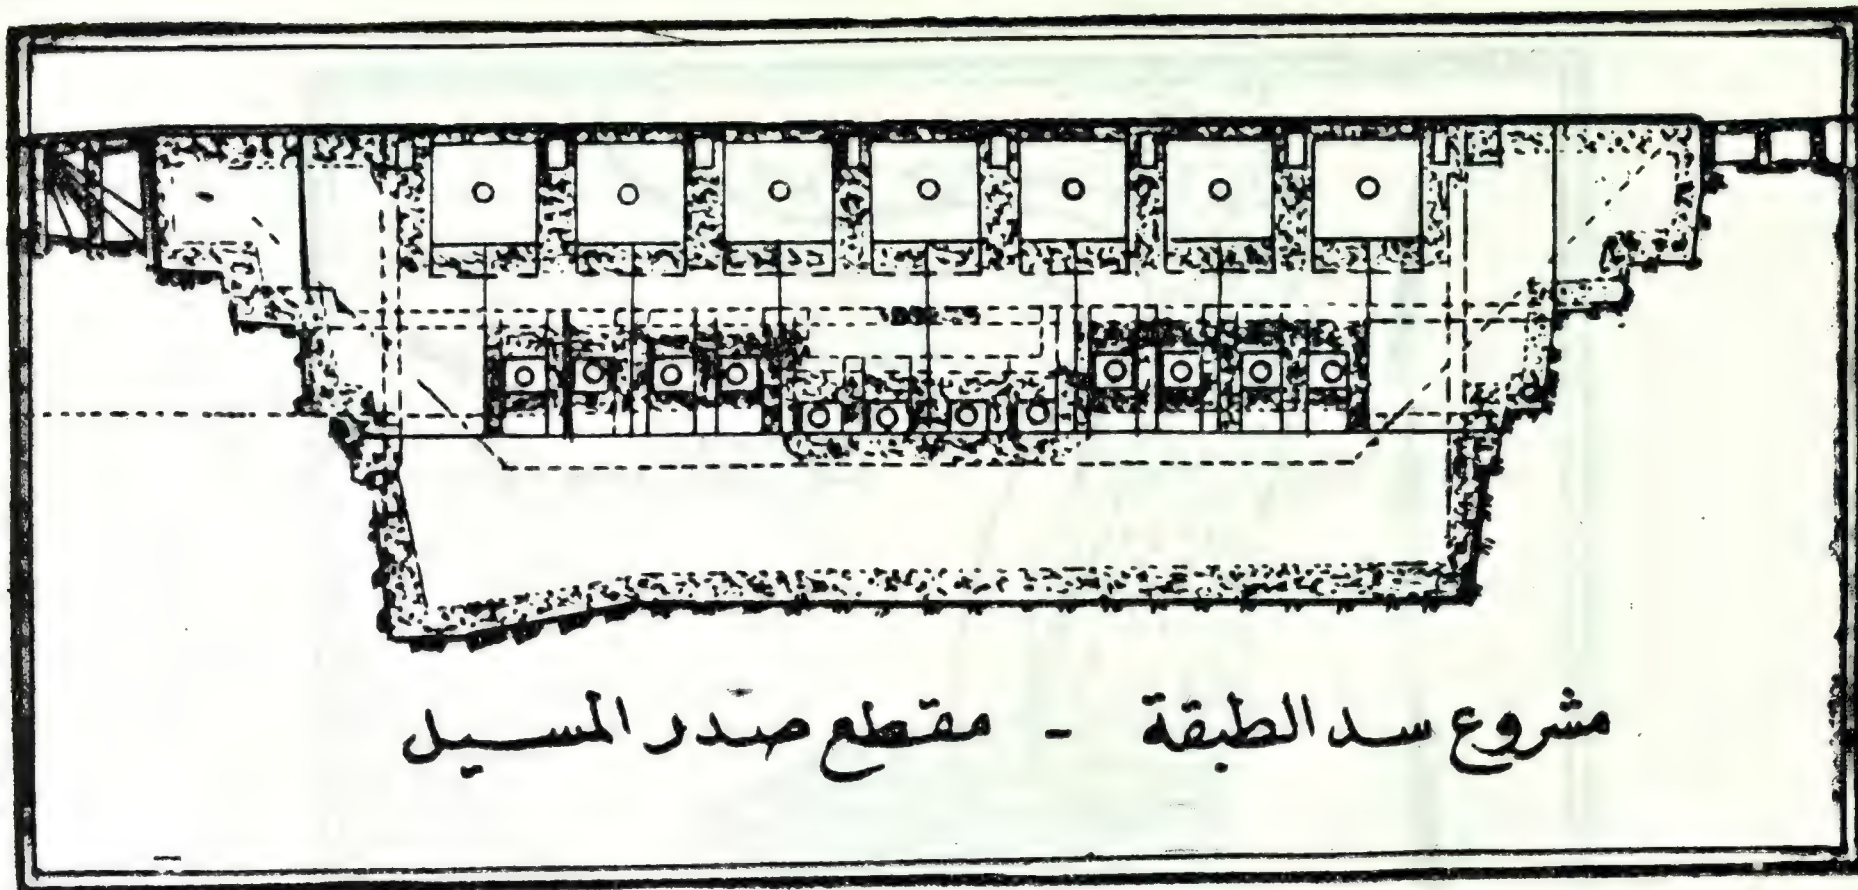 مشروع سد الطبقة - مقطع صدر المسيل